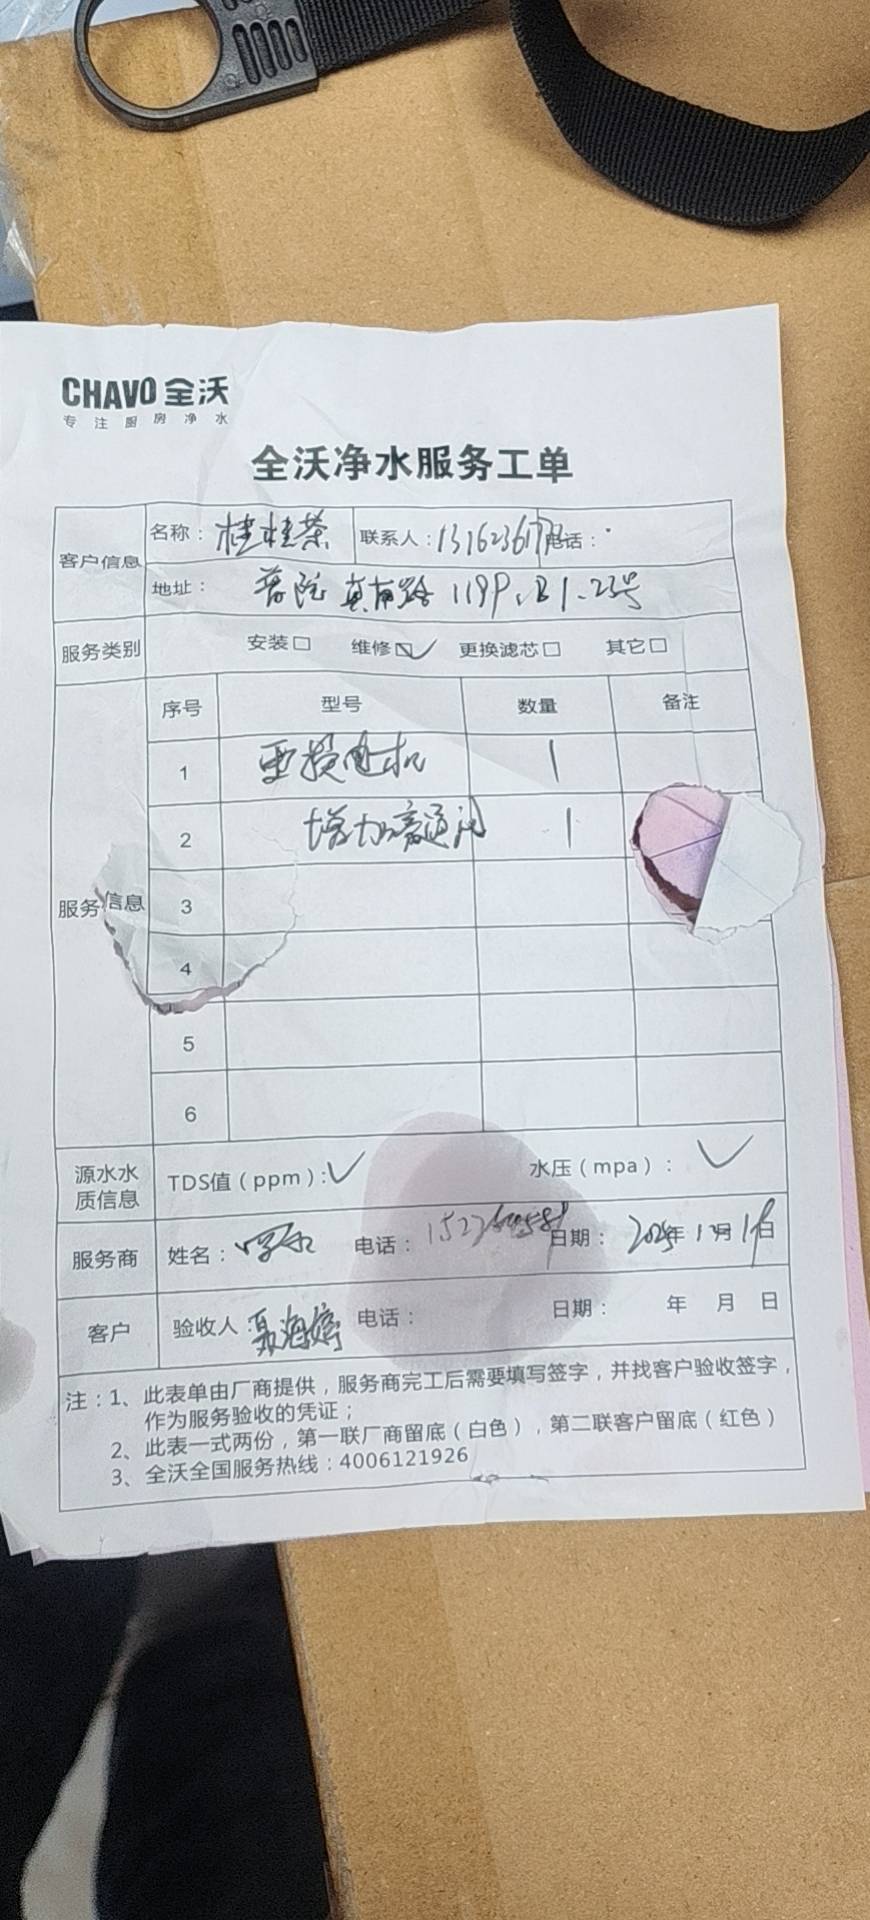 CHAVO 全沃
专注厨房净水
全沃净水服务工单
客户信息 名称：桂桂茶 联系人：13162361 电话：
地址：普陀 真南路 1199、B1-23号
服务类别 安装□ 维修☑ 更换滤芯□ 其它□
服务信息
序号 型号 数量 备注
1 更换电机 1
2 增加 1
3
4
5
6
源水水质信息 TDS值（ppm）：✓ 水压（mpa）：✓
服务商 姓名： 电话： 日期：2025年12月19日
客户 验收人：聂海婷 电话： 日期： 年 月 日
注：1、此表单由厂商提供，服务商完工后需要填写签字，并找客户验收签字，
作为服务验收的凭证；
2、此表一式两份，第一联厂商留底（白色），第二联客户留底（红色）
3、全沃全国服务热线：4006121926